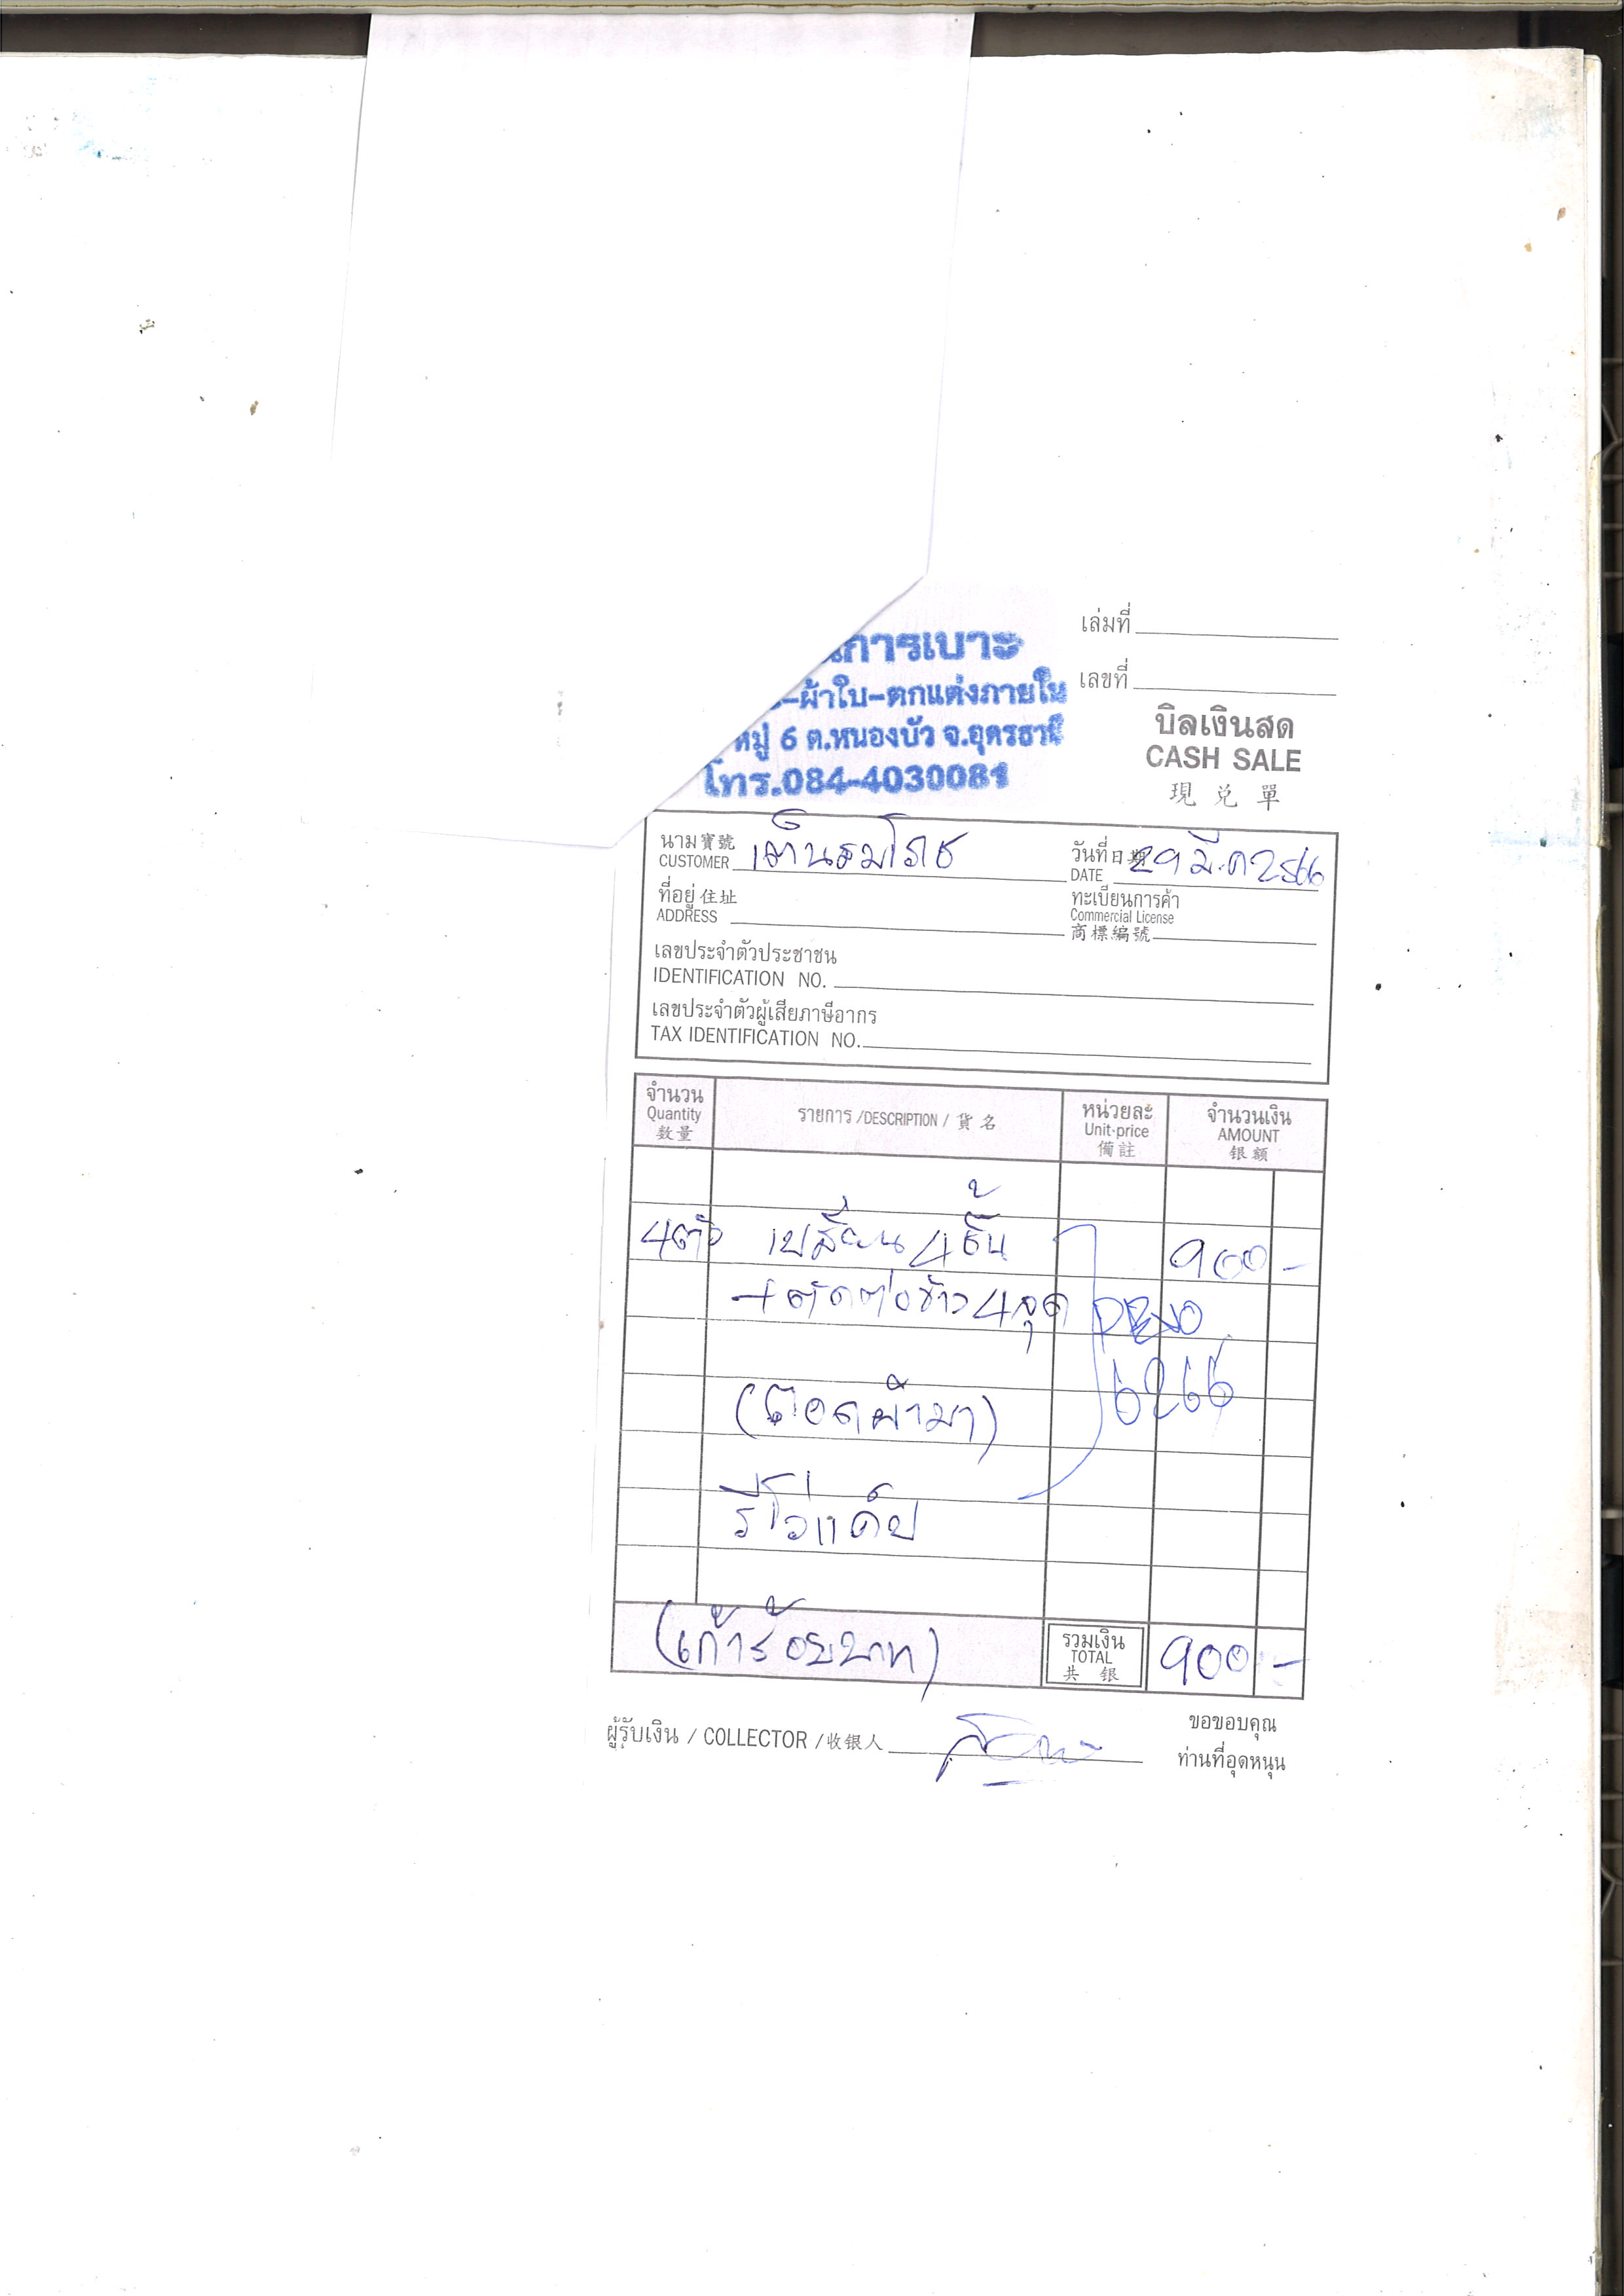 การเบาะ
-ผ้าใบ-ตกแต่งภายใน
หมู่ 6 ต.หนองบัว จ.อุดรธานี
โทร.084-4030081
เล่มที่
เลขที่
บิลเงินสด
CASH SALE
現兌單
นาม寶號
CUSTOMER
วันที่日期 29 มี.ค 2566
DATE
ที่อยู่住址
ADDRESS
ทะเบียนการค้า
Commercial License
商標編號
เลขประจำตัวประชาชน
IDENTIFICATION NO.
เลขประจำตัวผู้เสียภาษีอากร
TAX IDENTIFICATION NO.
จำนวน
Quantity
数量
รายการ /DESCRIPTION / 貨名
หน่วยละ
Unit-price
備註
จำนวนเงิน
AMOUNT
银额
4ตัว เปลี่ยน 4 ชิ้น 900 -
+ ตัดต่อข้าง 4 จุด
(ถอดผ้ามา)
6266
รีโว่แค็ป
(เก้าร้อยบาท)
รวมเงิน
TOTAL
共银
900 -
ผู้รับเงิน / COLLECTOR /收银人
ขอขอบคุณ
ท่านที่อุดหนุน